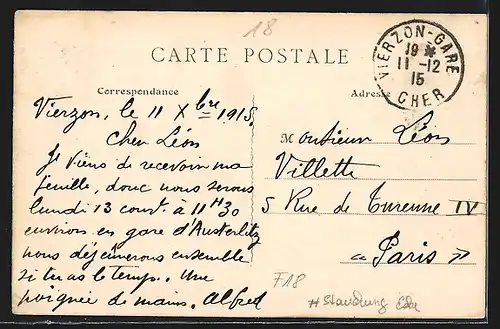 18
CARTE POSTALE
VIERZON-GARE
19 *
11 -12
15
CHER
Correspondance
Adresse
Vierzon, le 11 Xbre 1915
Cher Léon
Je viens de recevoir ma
feuille, donc nous serons
lundi 13 cour^t à 11H30
environ en gare d'Austerlitz
nous déjeunerons ensemble
si tu as le temps. Une
poignée de mains. Alfred
Monsieur Léon
Villette
5 Rue de Turenne IV
"Paris"
F18
# Standung